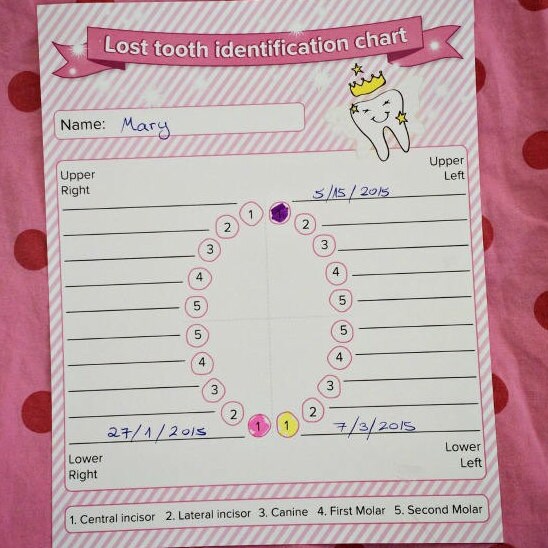 Lost tooth identification chart
Name: Mary
Upper Right
Upper Left
5/15/2015
1
2 2
3 3
4 4
5 5
5 5
4 4
3 3
2 2
27/1/2015 1 1 7/3/2015
Lower Right
Lower Left
1. Central incisor 2. Lateral incisor 3. Canine 4. First Molar 5. Second Molar